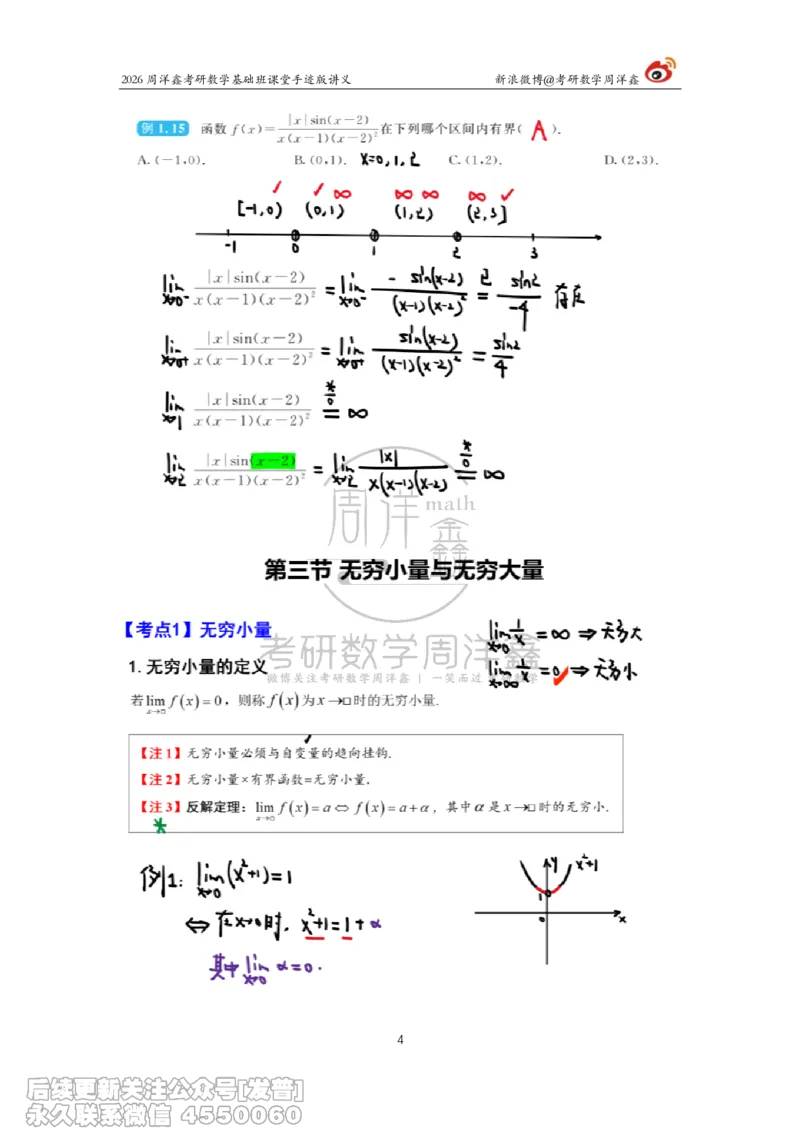 2026 周洋鑫考研数学基础班课堂手迹版讲义 新浪微博@考研数学周洋鑫
例 1.15 函数 f(x)=|x|sin(x-2)/x(x-1)(x-2)² 在下列哪个区间内有界( A ).
A. (-1,0). B. (0,1). x=0,1,2 C. (1,2). D. (2,3).
✓ ✓ ∞ ∞ ∞ ∞ ✓
[-1,0) (0,1) (1,2) (2,3]
-1 0 1 2 3
lim x→0⁻ |x|sin(x-2)/x(x-1)(x-2)² = lim x→0⁻ -sin(x-2)/(x-1)(x-2)² = sin2/-4 存在
lim x→0⁺ |x|sin(x-2)/x(x-1)(x-2)² = lim x→0⁺ sin(x-2)/(x-1)(x-2)² = sin2/4
lim x→1 |x|sin(x-2)/x(x-1)(x-2)² *⁄0 = ∞
lim x→2 |x|sin(x-2)/x(x-1)(x-2)² = lim x→2 |x|/x(x-1)(x-2) *⁄0 = ∞
周洋鑫 math
第三节 无穷小量与无穷大量
【考点1】无穷小量
lim x→0 1/x = ∞ ⇒ 无穷大
考研数学周洋鑫
1. 无穷小量的定义
lim x→∞ 1/x = 0 ✓ ⇒ 无穷小
微博关注考研数学周洋鑫 | 一笑而过 数学
若 lim x→□ f(x)=0，则称 f(x) 为 x→□ 时的无穷小量.
【注 1】无穷小量必须与自变量的趋向挂钩.
【注 2】无穷小量×有界函数=无穷小量.
【注 3】反解定理：lim x→□ f(x)=a⇔f(x)=a+α，其中 α 是 x→□ 时的无穷小.
*
例1: lim x→0 (x²+1)=1
y x²+1
1
0 x
⇔ 在x→0时, x²+1=1+α
其中 lim x→0 α=0.
4
后续更新关注公众号[发普]
永久联系微信 4550060